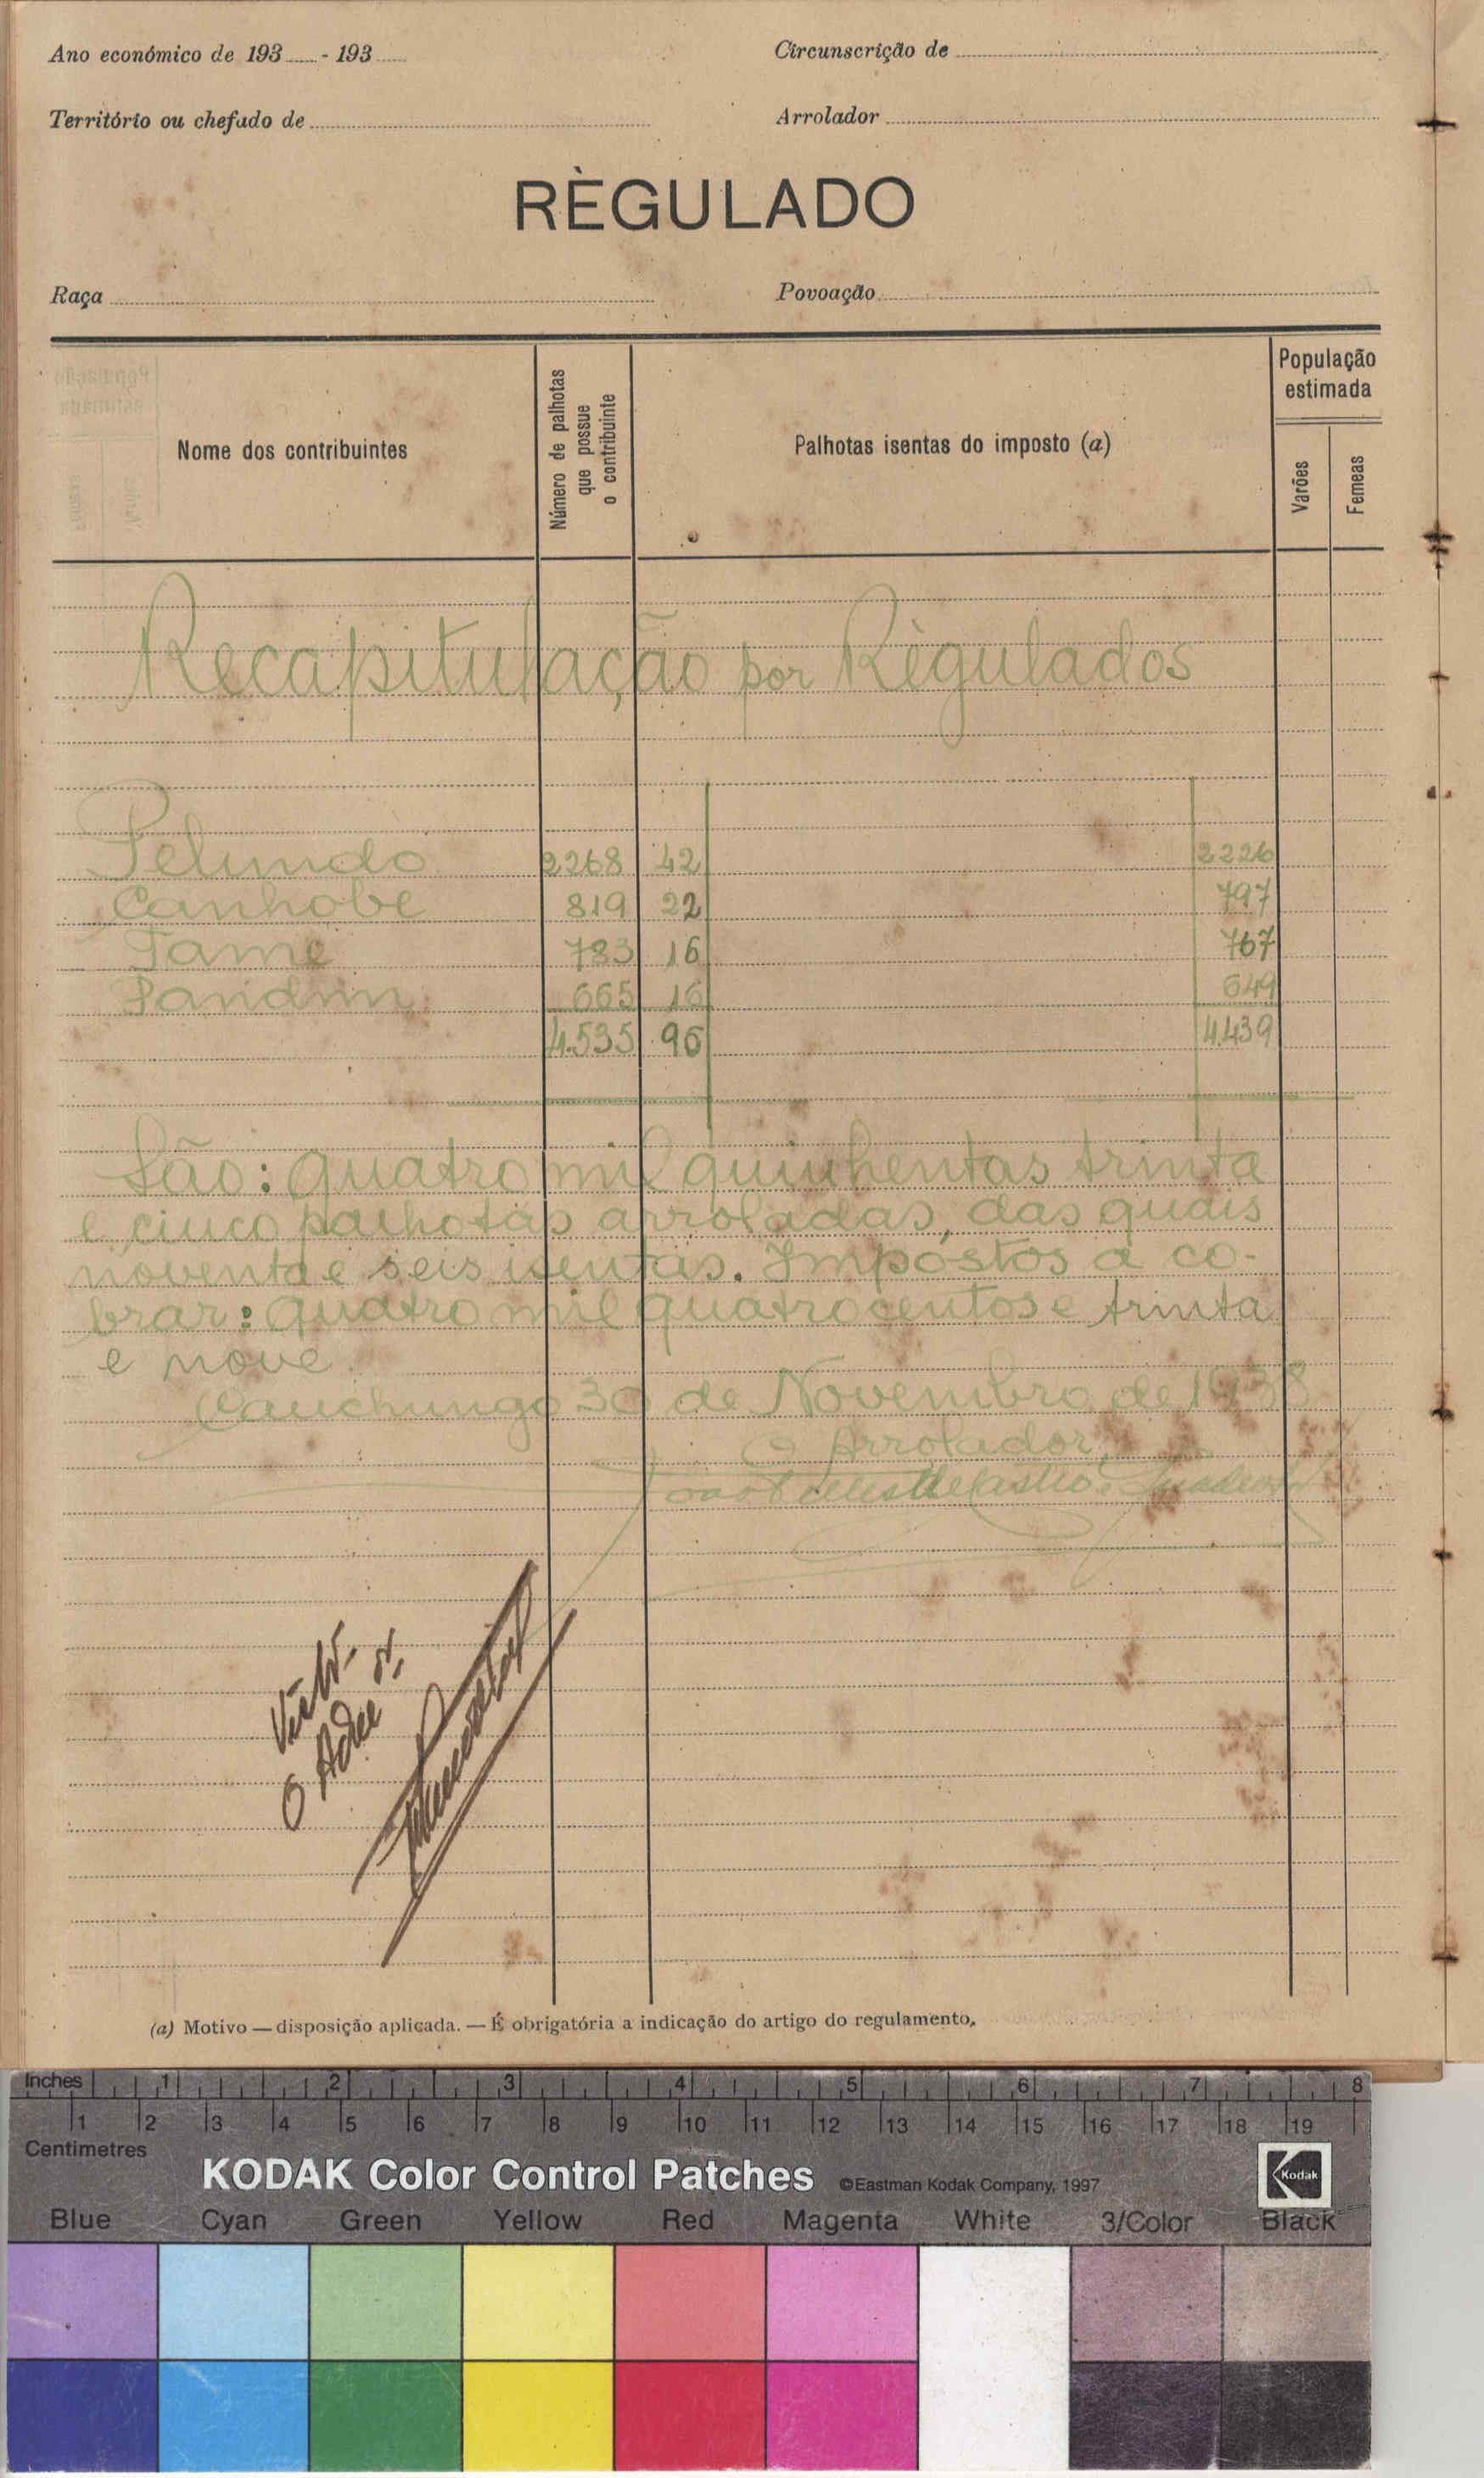 Ano económico de 193...... - 193......
Circunscrição de
Território ou chefado de
Arrolador
RÈGULADO
Raça
Povoação
Nome dos contribuintes
Número de palhotas que possue o contribuinte
Palhotas isentas do imposto (a)
População estimada
Varões
Femeas
Recapitulação por Règulados
Pelundo 2268 42 2226
Canhobe 819 22 797
Tame 783 16 767
Pandim 665 16 649
4.535 96 4.439
São: quatro mil quinhentas trinta
e cinco palhotas arroladas, das quais
noventa e seis isentas. Impóstos a co-
brar: quatro mil quatrocentos e trinta
e nove.
Canchungo 30 de Novembro de 1938
O Arrolador,
Visto
O
(a) Motivo — disposição aplicada. — É obrigatória a indicação do artigo do regulamento.
Inches 1 2 3 4 5 6 7 8
1 2 3 4 5 6 7 8 9 10 11 12 13 14 15 16 17 18 19
Centimetres
KODAK Color Control Patches ©Eastman Kodak Company, 1997 Kodak
Blue Cyan Green Yellow Red Magenta White 3/Color Black